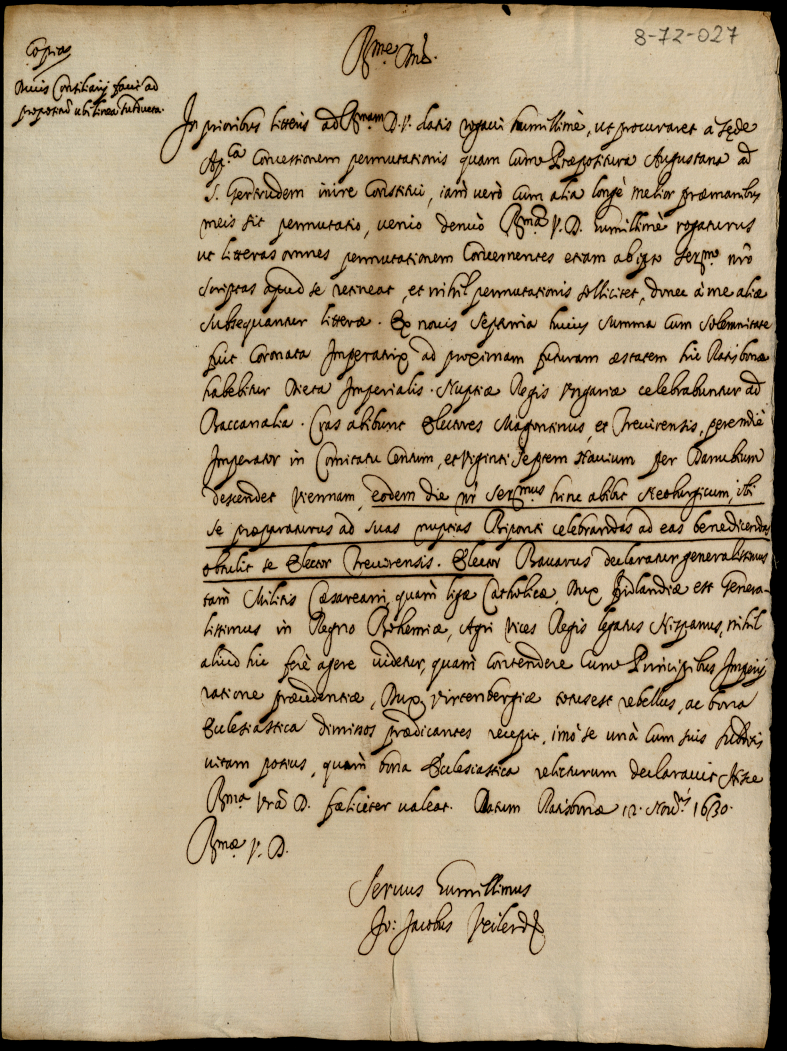 8-72-027
Copias
Rme Dne.
huius Consiliarij facit ad
propositum ubi linea subducta.
In prioribus litteris ad Rmam D. V. datis rogavi humillimè, ut procuraret a Sede
Ap.ca Concessionem permutationis quam cum Præpositura Augustana ad
S. Gertrudem inire Constitui, iam verò cum alia longè melior præ manibus
meis sit permutatio, venio denuò Rmã V. D. humillimè rogaturus
ut litteras omnes permutationem Concernentes etiam ab ipso Sermo nro
scriptas apud se retineat, et nihil permutationis sollicitet, donec à me aliæ
subsequantur litteræ. Ex novis Septima huius summa cum solemnitate
fuit Coronata Imperatrix, ad proximam futuram æstatem hic Ratisbonæ
habebitur Dieta Imperialis. Nuptiæ Regis Vngariæ celebrabuntur ad
Baccanalia. Cras abibunt Electores Magontinus, et Trevirensis, perendiè
Imperator in Comitatu Centum, et viginti Septem Navium per Danubium
descendet Viennam, eodem die nr Sermus hinc abibit Neoburgicum, ibi
se præparaturus ad suas nuptias Biponti celebrandas ad eas benedicendas
obtulit se Elector Trevirensis. Elector Bavarus declaratur generalissimus
tam Militis Cæsareani, quàm ligæ Catholicæ, Dux Fidlandiæ est Genera-
lissimus in Regno Bohemiæ, Agri Vices Regis legatus Hispanus, nihil
aliud hic ferè agere videtur, quam Contendere Cum Principibus Imperij
ratione præcedentiæ, Dux Virtenbergiæ totus est rebellus, ac bona
Ecclesiastica dimissos prædicantes recepit, imò se unà Cum suis subditis
vitam potius, quam bona Ecclesiastica relicturum declaravit
Rma Vrã D. fæliciter valeat. Datum Ratisbonæ 12. Novris 1630.
Rmæ V. D.
Servus humillimus
Jo: Jacobus